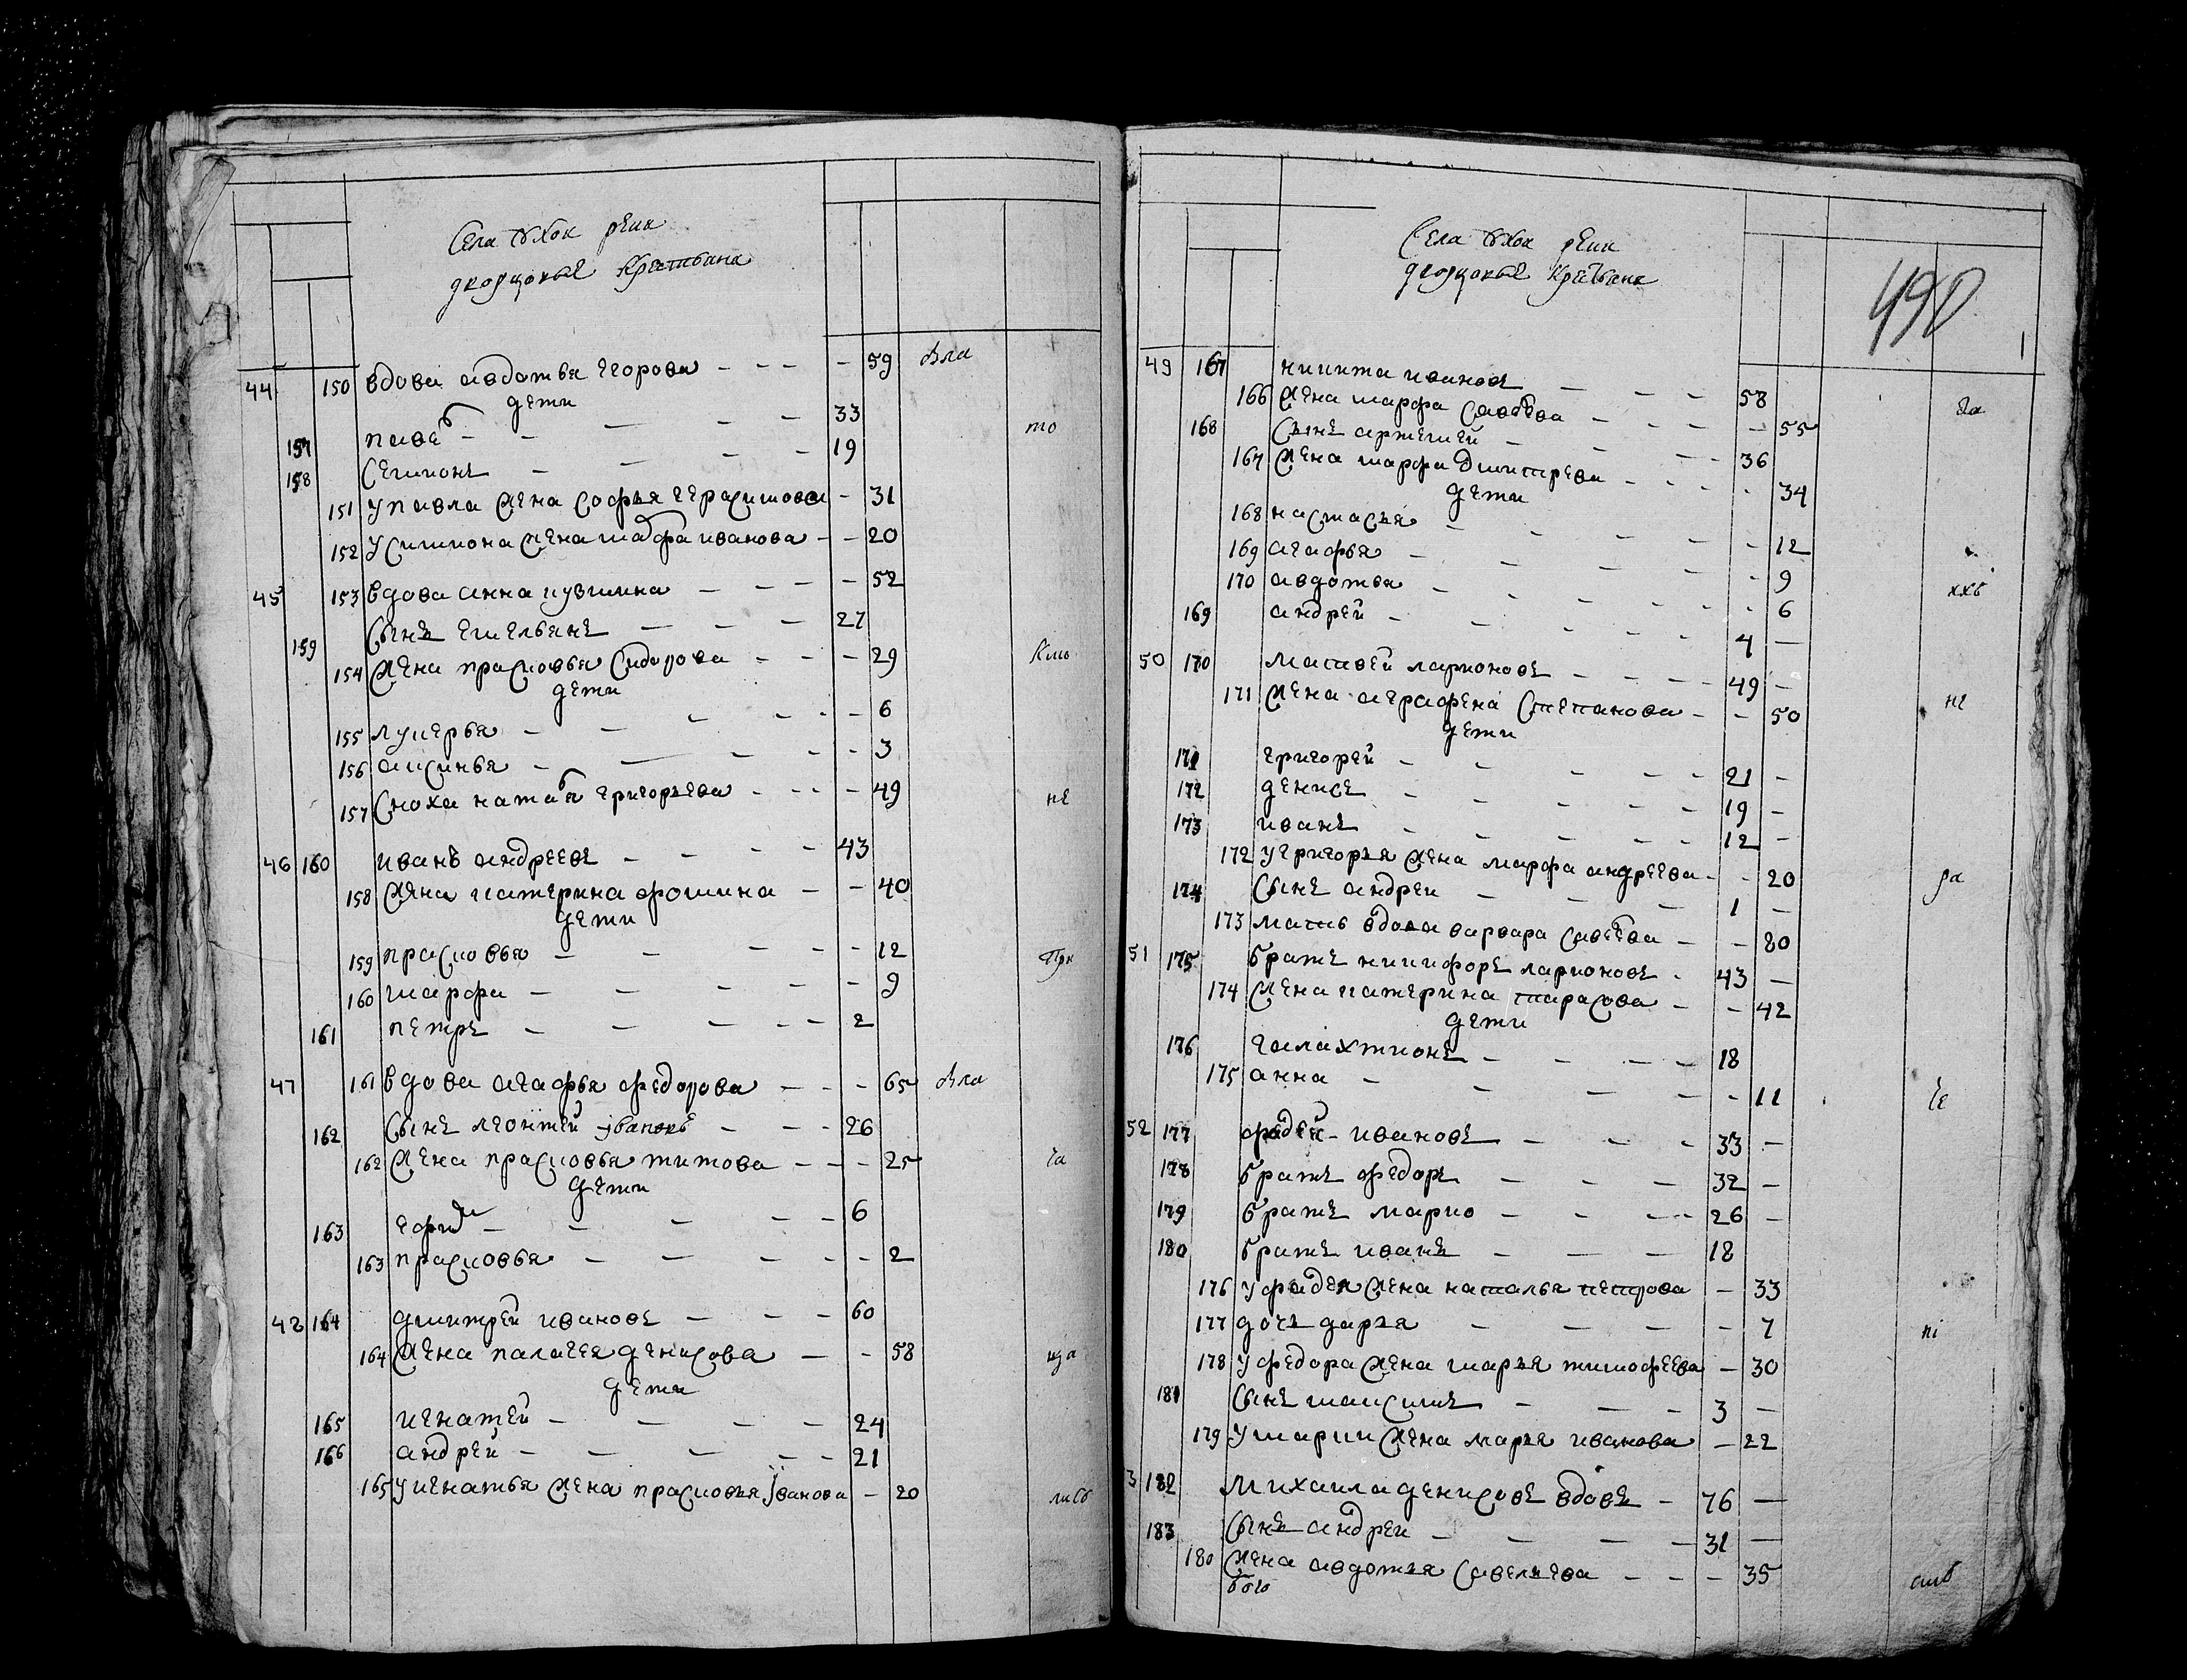 Села рѣки
дворцовые крестьяне
44 150 вдова авдотья егорова - 59
дети
157 павел 33
158 семионъ 19
151 у павла жена софья герасимова - 31
152 у симиона жена марфа иванова - 20
45 153 вдова анна кузмина - 52
159 сынъ емельянъ 27
154 жена прасковья сидорова - 29
дети
155 лукерья - 6
156 аксинья - 3
157 сноха наталья григорьева - 49 не
46 160 иванъ андреевъ 43
158 жена катерина фомина - 40
дети
159 прасковья - 12
160 марфа - 9
161 петръ 2
47 161 вдова агафья федорова - 65
162 сынъ леонтей ивановъ 26
162 жена прасковья титова - 25
дети
163 6
163 прасковья - 2
48 164 дмитрей ивановъ 60
164 жена палагея денисова - 58
дети
165 игнатей 24
166 андрей 21
165 у игнатья жена прасковья иванова - 20
Села рѣки
дворцовые крестьяне
490
49 167 никита ивановъ 58
166 жена марфа савѣева - 55
168 сынъ артемей 36
167 жена марфа дмитрева - 34
дети
168 настасья - 12
169 агафья - 9
170 авдотья - 6
169 андрей 4 -
50 170 матвей ларионовъ 49 -
171 жена аграфена степанова - 50 не
дети
171 григорей 21 -
172 денисъ 19 -
173 иванъ 12 -
172 у григорья жена марфа андреева - 20
174 сынъ андреи 1 -
173 мать вдова варвара савѣева - 80
51 175 братъ никифоръ ларионовъ 43 -
174 жена катерина тарасова - 42
дети
176 галахтионъ 18
175 анна - 11
52 177 фадей ивановъ 33 -
178 братъ федоръ 32 -
179 братъ марко 26 -
180 братъ иванъ 18
176 у фадея жена наталья петрова - 33
177 дочь дарья - 7
178 у федора жена марья тимофеева - 30
181 сынъ максимъ 3 -
179 у марки жена марья иванова - 22
3 182 михаила денисовъ вдовъ 76 -
183 сынъ андреи 31 -
180 жена авдотья савельева - 35